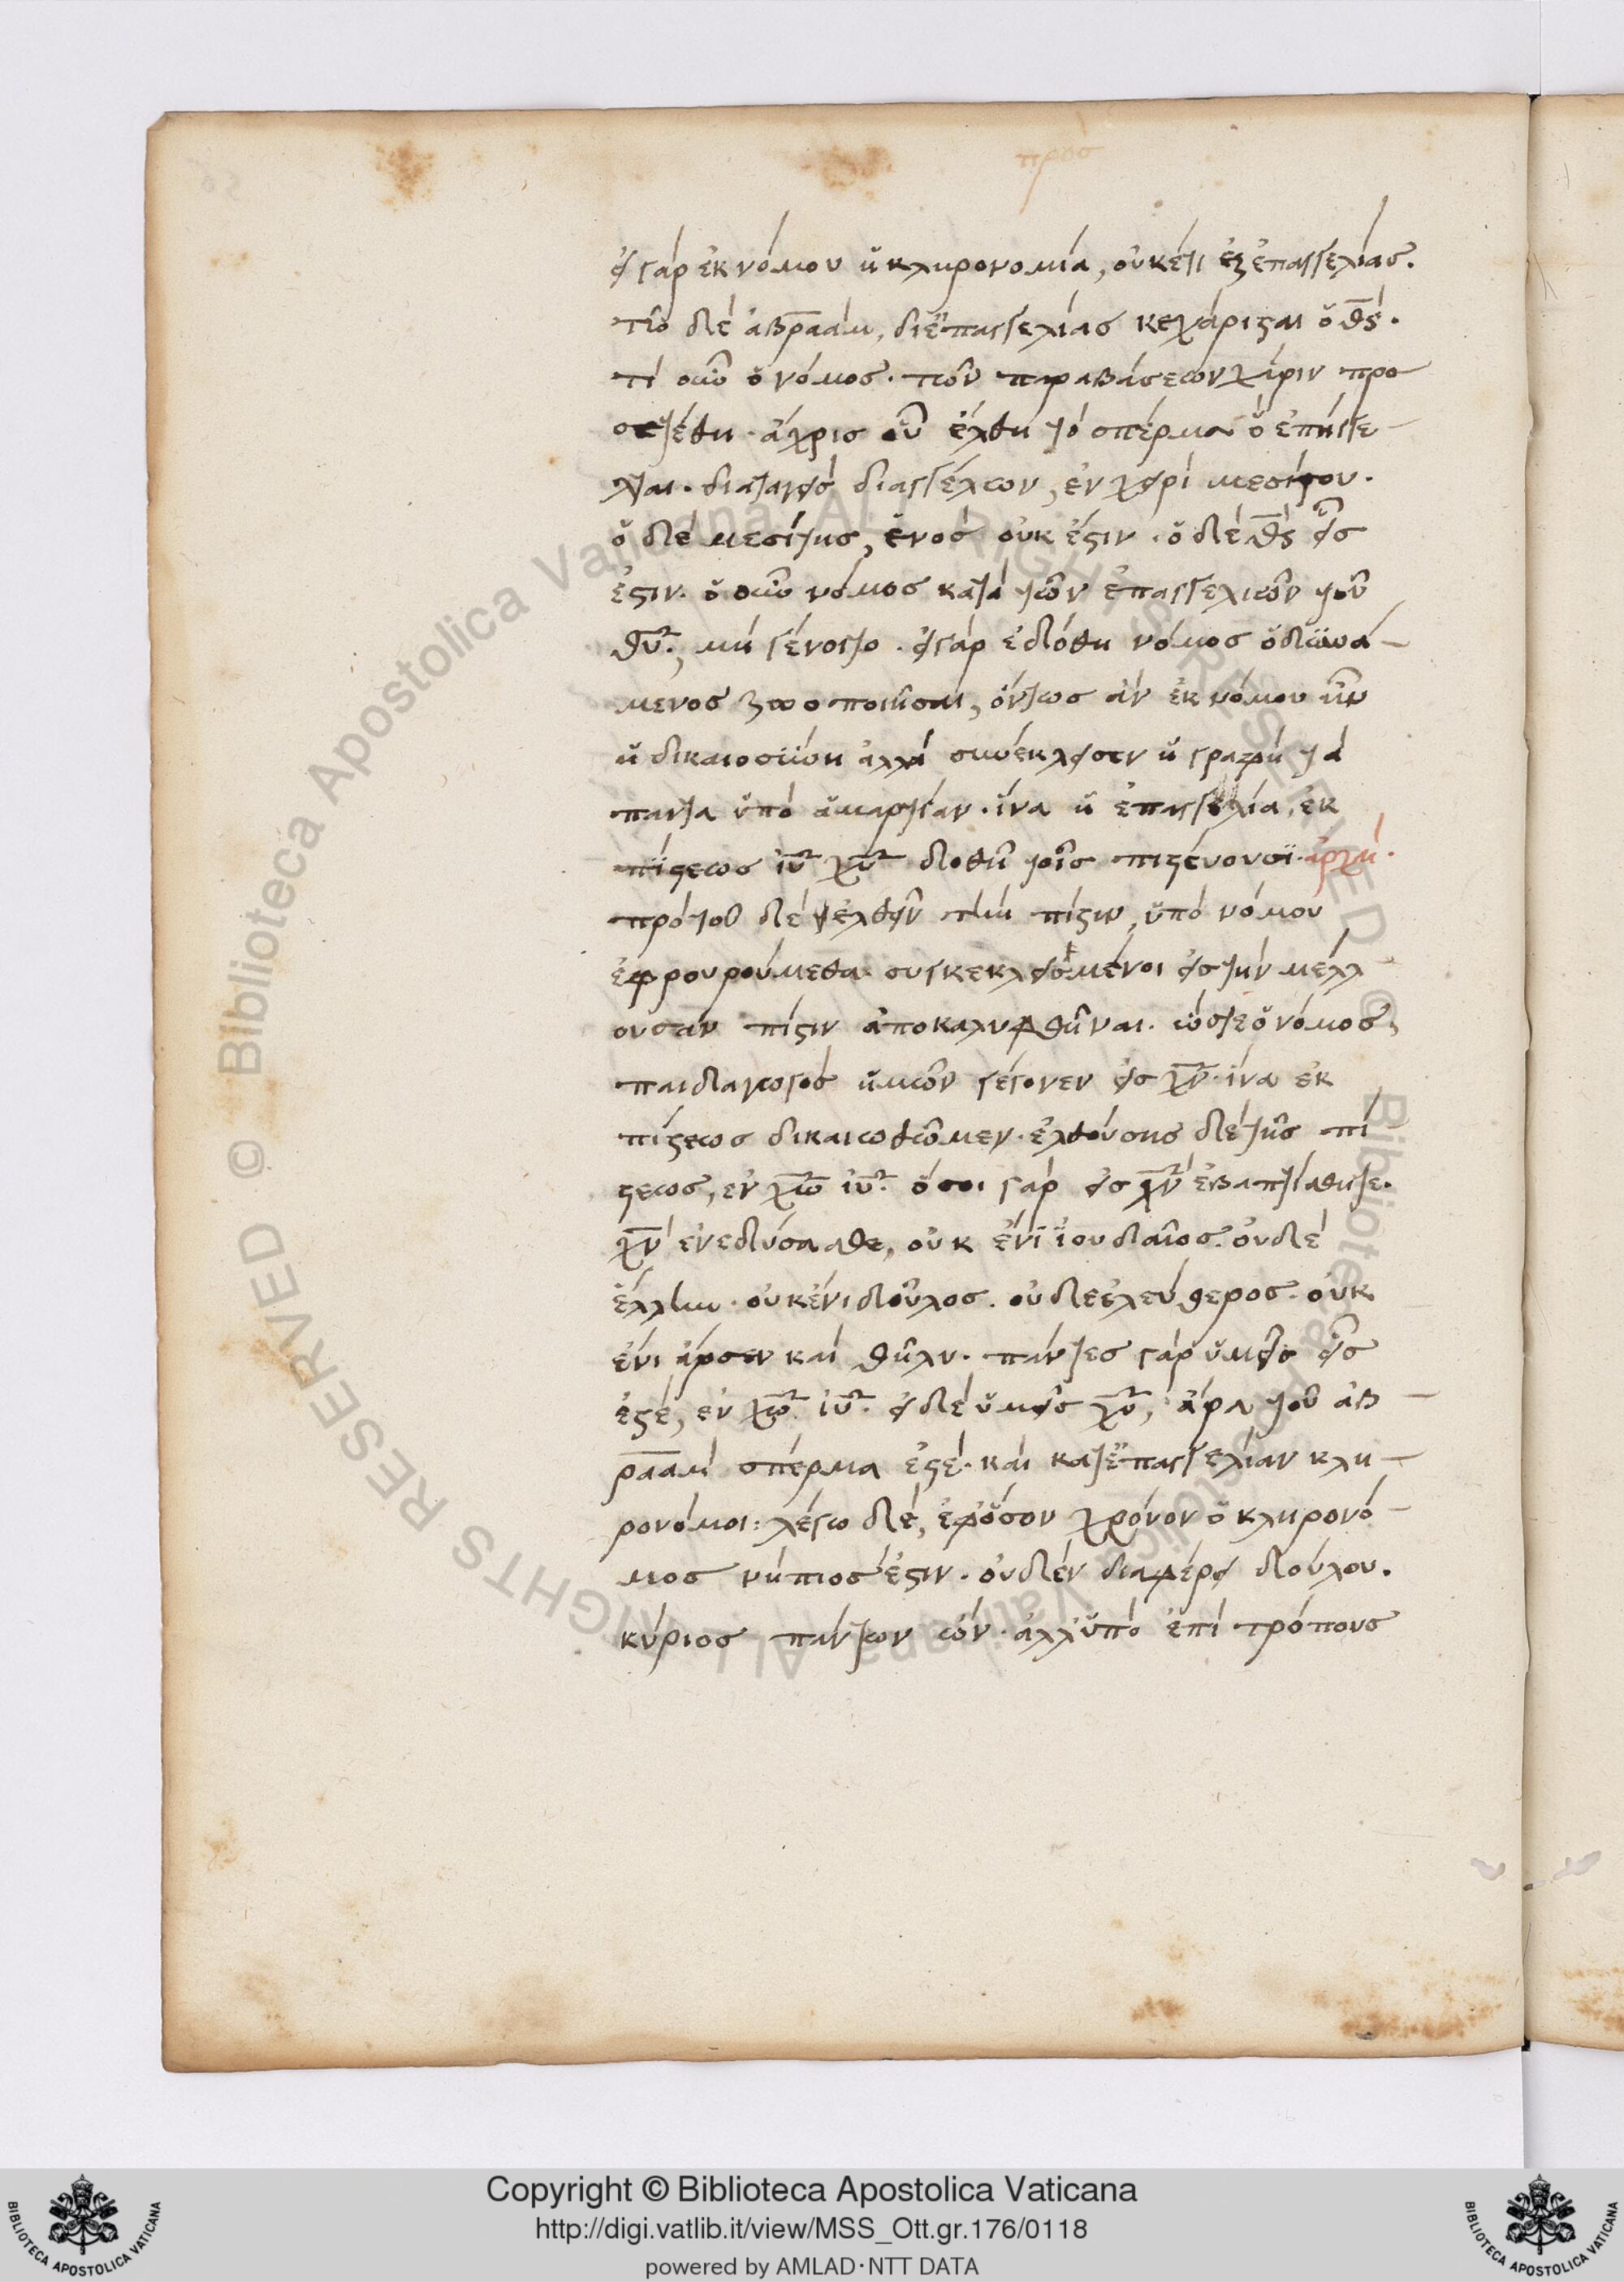 προσ
εἰ γὰρ ἐκ νόμου ἡ κληρονομία, οὐκέτι ἐξ ἐπαγγελίας.
τῶ δὲ ἀβραὰμ, δι ἐπαγγελίας κεχάρισται ὁ θς.
τί οὖν ὁ νόμος. τῶν παραβάσεων χάριν προ
σετέθη. ἄχρις οὗ ἔλθη τὸ σπέρμα ὃ ἐπήγγε-
λται. διαταγεὶς δι αγγέλων, ἐν χειρὶ μεσίτου.
ὁ δὲ μεσίτης, ἑνὸς οὐκ ἔστιν. ὁ δὲ θς εἷς
ἐστιν. ὁ οὖν νόμος κατὰ τῶν ἐπαγγελιῶν τοῦ
θυ, μὴ γένοιτο. εἰ γὰρ ἐδόθη νόμος ὁ δυνά-
μενος ζωοποιῆσαι, ὄντως ἂν ἐκ νόμου ἦν
ἡ δικαιοσύνη ἀλλὰ συνέκλεισεν ἡ γραφὴ τὰ
παντα ὑπὸ ἁμαρτίαν. ἵνα ἡ ἐπαγγελία, ἐκ
πίστεως ιυ χυ δοθῆ τοῖς πιστεύουσϊ. ἀρχὴ.
πρὸ τοῦ δὲ ἐλθεῖν τὴν πίστιν, ὑπὸ νόμου
ἐφρουρούμεθα. συγκεκλεισμένοι εἰς τὴν μέλλ
ουσαν πίστιν ἀποκαλυφθῆναι. ὥστε ὁ νόμος,
παιδαγωγὸς ἡμῶν γέγονεν εἰς χν. ἵνα ἐκ
πίστεως δικαιωθῶμεν. ἐλθούσης δὲ τῆς πί
στεως, ἐν χω ιυ. ὅσοι γὰρ εἰς χν ἐβαπτίσθητε.
χν ἐνεδύσασθε, οὐκ ἔνϊ ϊουδαῖος. οὐδὲ
ἕλλην. οὐκ ἔνι δοῦλος. οὐδε ἐλεύθερος. οὐκ
ἔνι ἄρσεν καὶ θῆλυ. πάντες γὰρ ὑμεῖς εἷς
ἐστὲ, ἐν χω ιυ. εἰ δὲ ὑμεῖς χυ, ἄρα τοῦ ἀβ-
ραὰμ σπέρμα ἐστέ. καὶ κατ ἐπαγγελίαν κλη-
ρονόμοι: λέγω δὲ, ἐφ ὅσον χρόνον ὁ κληρονό-
μος νήπιος ἐστιν. οὐδὲν διαφέρει δούλου.
κύριος πάντων ὢν. ἀλλ ὑπὸ ἐπὶ τρόπους
Copyright © Biblioteca Apostolica Vaticana
http://digi.vatlib.it/view/MSS_Ott.gr.176/0118
powered by AMLAD·NTT DATA